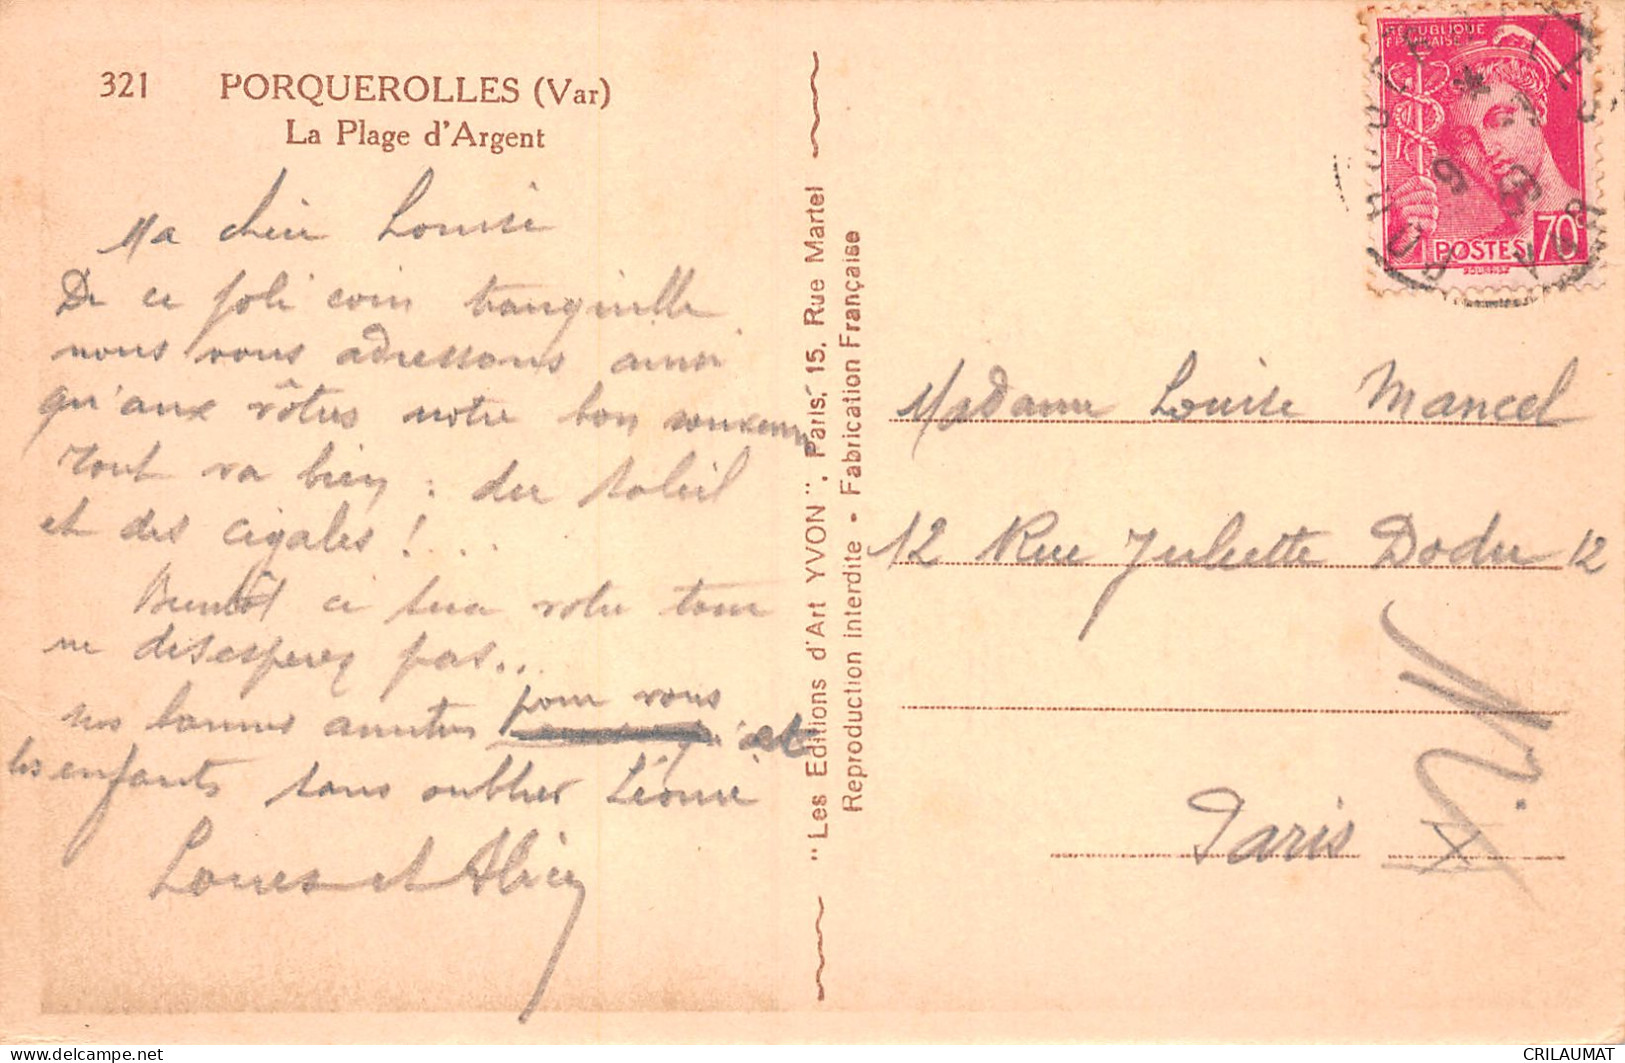 321 PORQUEROLLES (Var)
La Plage d'Argent
Ma chère Louise
De ce joli coin tranquille
nous vous adressons ainsi
qu'aux vôtres notre bon souvenir
Tout va bien : du soleil
et des cigales ! ...
Bientôt ce sera votre tour
ne desesperez pas..
nos bonnes amitiés pour vous
et
les enfants sans oublier Léonie
Louis et Alice
"Les Editions d'Art YVON", Paris, 15, Rue Martel
Reproduction interdite - Fabrication Française
REPUBLIQUE
FRANÇAISE
POSTES 70c
Madame Louise Mancel
12 Rue Juliette Dodu 12
Paris X
PORQUEROLLES
VAR
CRILAUMAT